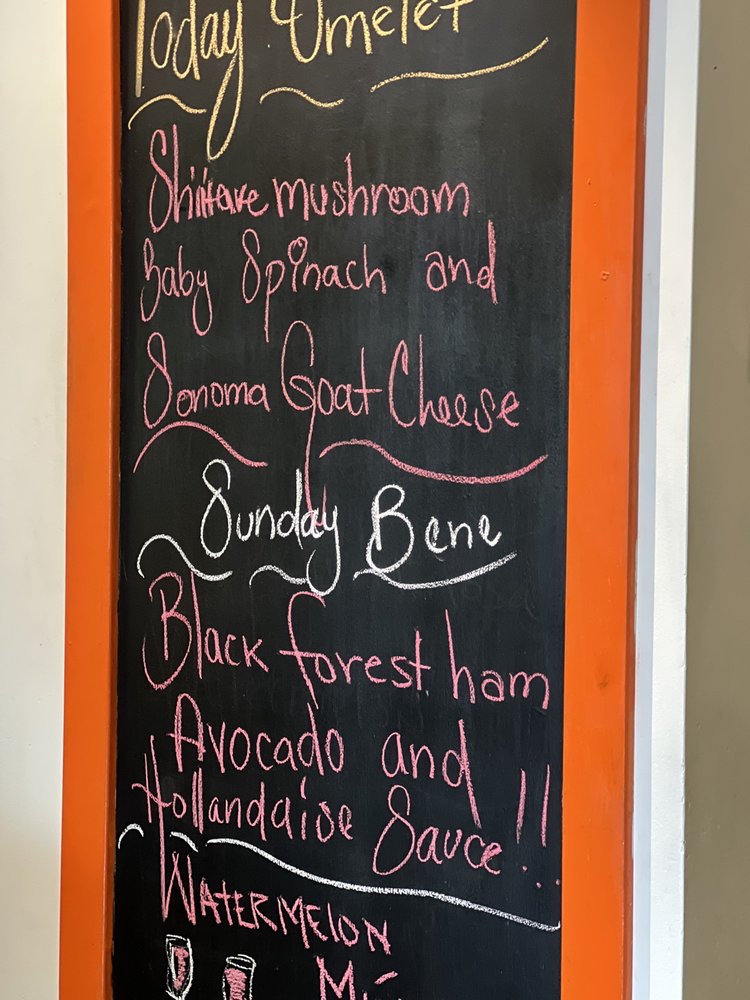 Today Omelet
Shiitake mushroom
Baby Spinach and
Sonoma Goat Cheese
Sunday Bene
Black forest ham
Avocado and
Hollandaise Sauce!!
WATERMELON